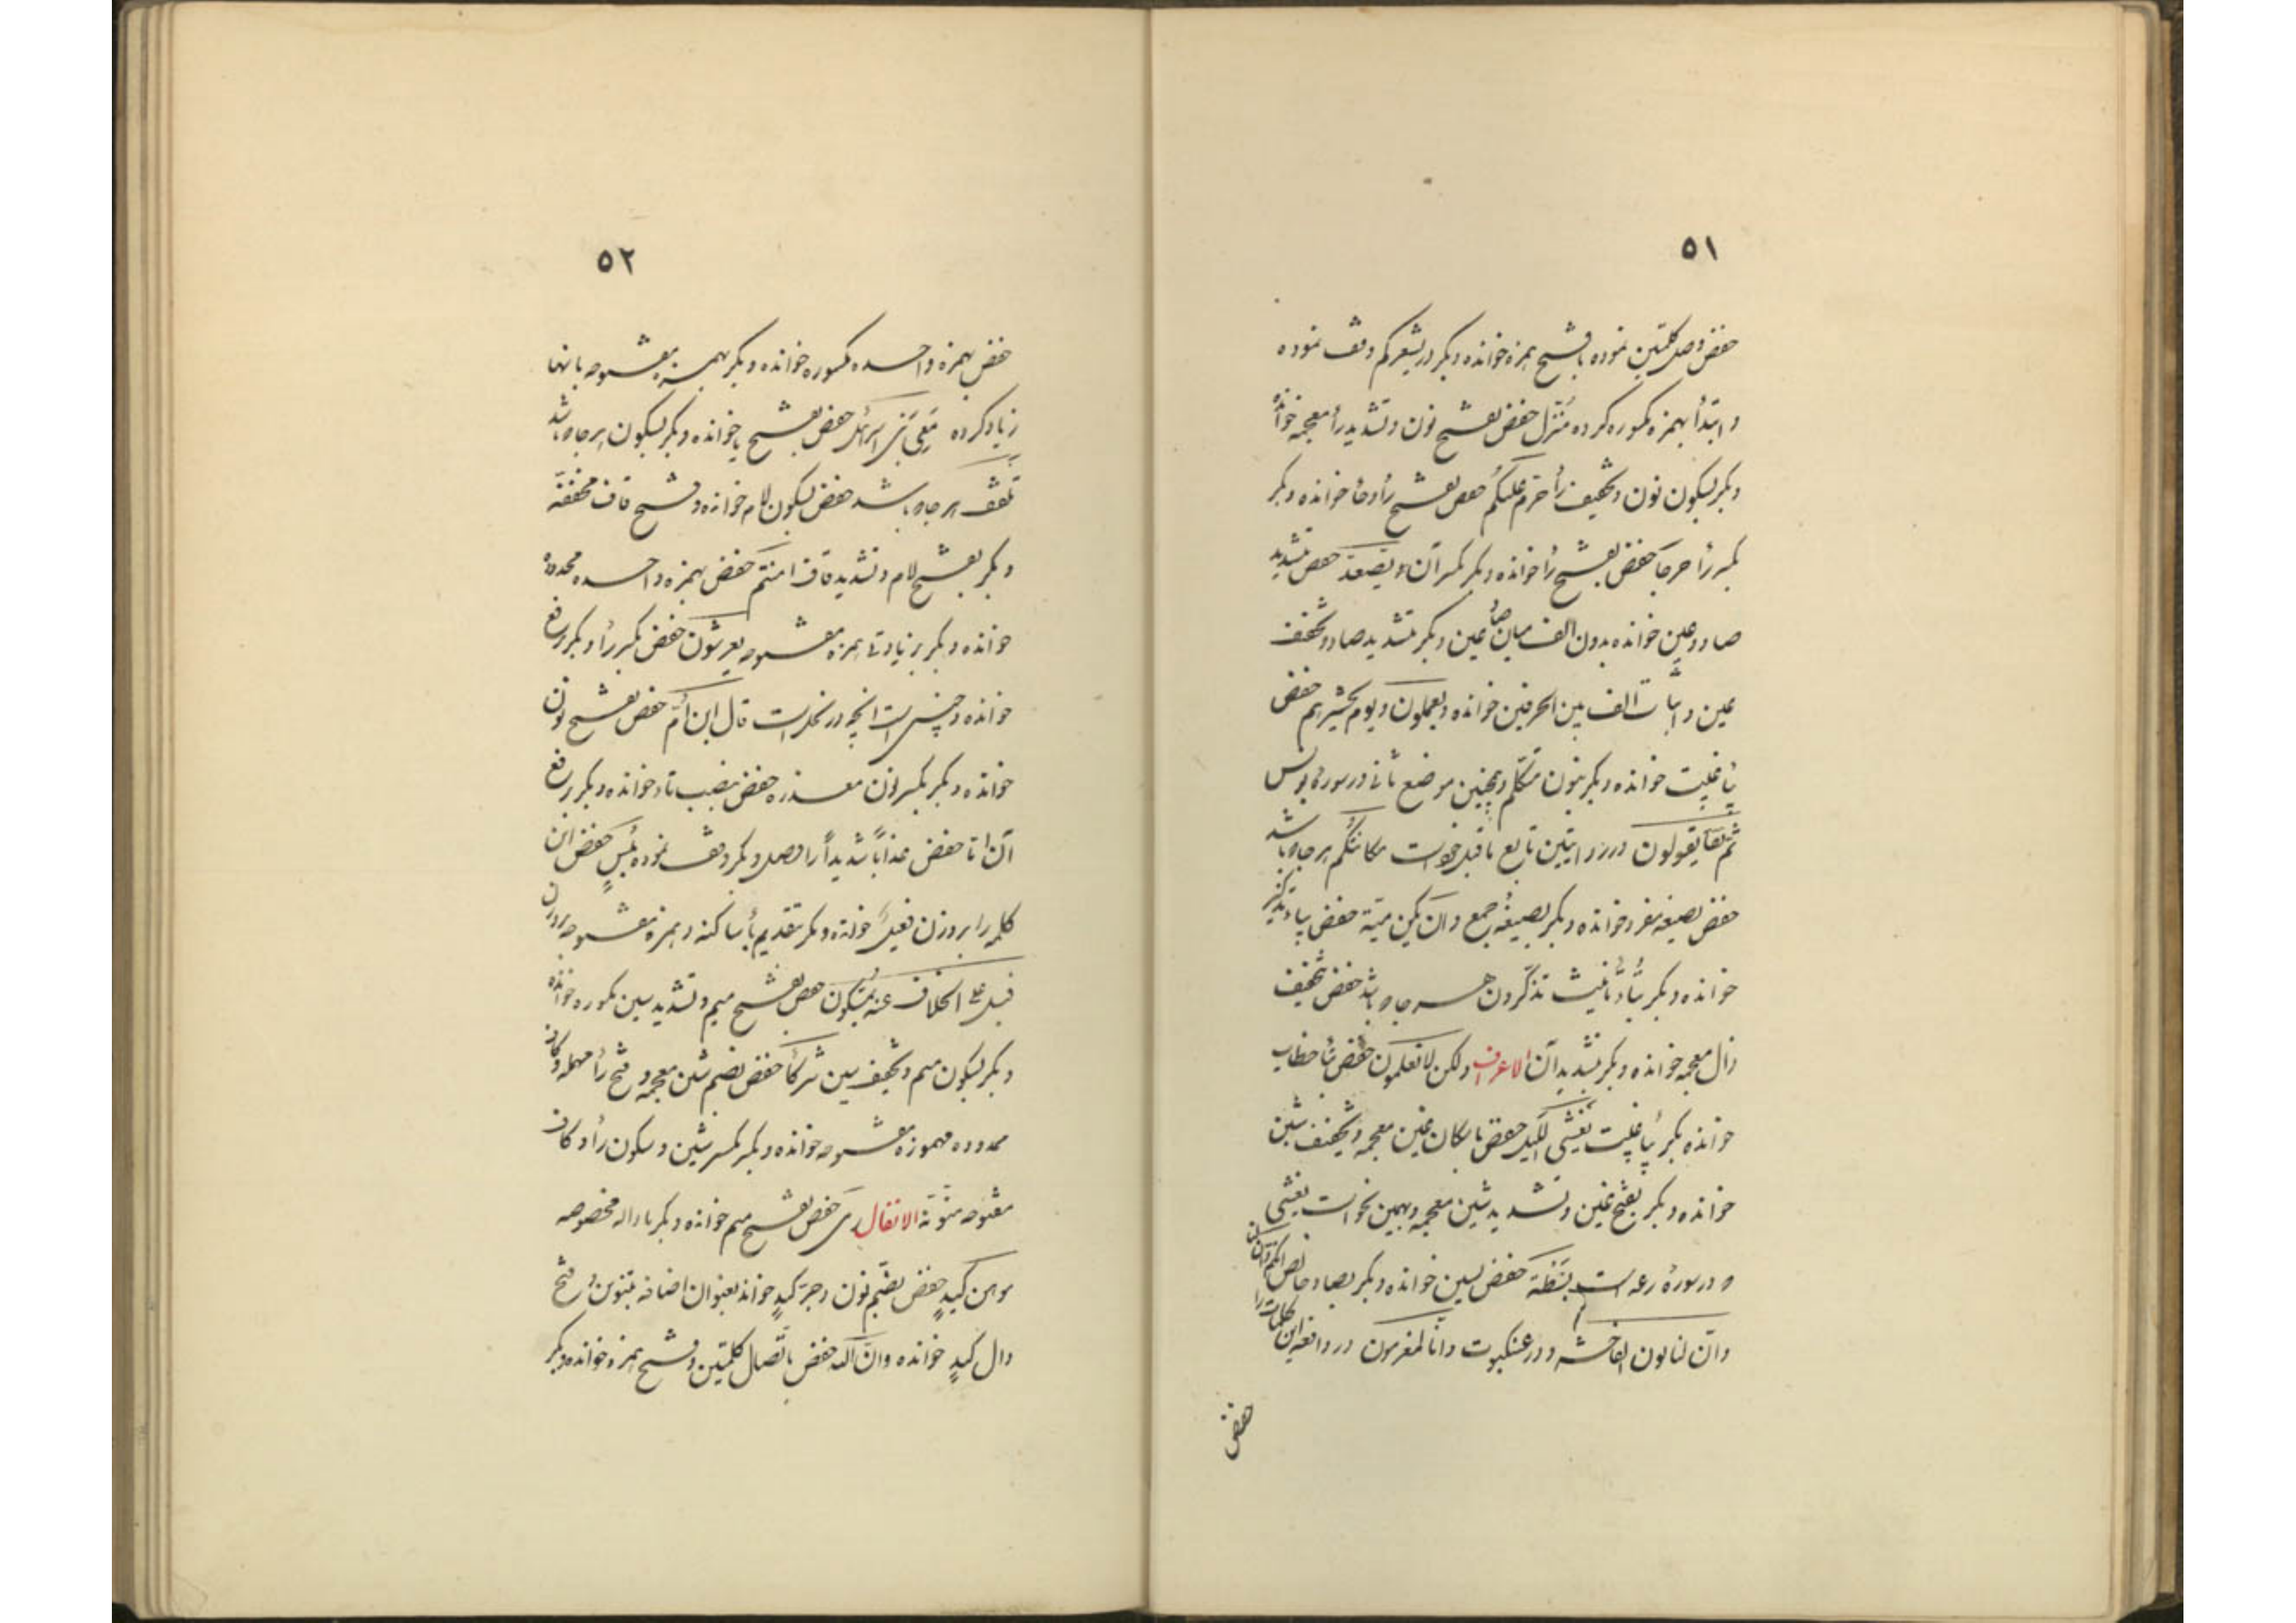 ٥١
حفص وصل کلمتین نموده با فتح همزه خوانده و بکر در یشعرکم وقف نموده
و ابتدأ بهمزه مکسوره کرده مُنَزَّل حفص بفتح نون و تشدید زأ معجمه خوانده
و بکر بسکون نون و تخفیف زأ حرّم علیکم حفص بفتح رأ و حأ خوانده و بکر
بکسر رأ حرجاً حفص بفتح رأ خوانده و بکر بکسر آن و یصّعّد حفص بتشدید
صاد و عین خوانده بدون الف میان صاد عین و بکر بتشدید صاد و تخفیف
عین و اثبات الف بین الحرفین خوانده و یعملون و یوم یحشرهم حفص
بیأ غیبت خوانده و بکر بنون متکلم و همچنین موضع ثانی در سوره یونس
ثم یقولون در روایتین تابع ماقبل خود است مکانتکم هر جا که باشد
حفص بصیغه مفرد خوانده و بکر بصیغه جمع و ان یکن میتة حفص بیاء تذکیر
خوانده و بکر بتأ تأنیث تذکّرون هر جا که باشد حفص بتخفیف
ذال معجمه خوانده و بکر بتشدید آن الاعراف ولکن لا تعلمون حفص بتأ خطاب
خوانده بکر بیأ غیبت یغشی اللیل حفص باسکان غین معجمه و تخفیف شین
خوانده و بکر بفتح غین و تشدید شین معجمه و بهمین نحو است یغشی
که در سورهٔ رعد است بسطة حفص بسین خوانده و بکر بصاد خالص ائنکم لتأتون
و انّ لنا تون الفاحشه در عنکبوت و انا لمغرمون در واقعه این کلمات را
حفص
٥٢
حفص بهمزه واحده مکسوره خوانده و بکر بهمزه مفتوحه بانها
زیاد کرده مَعِیَ بنی اسرائیل حفص بفتح یا خوانده و بکر بسکون هر جا که باشد
تلقف هر جا که باشد حفص بسکون لام خوانده و فتح قاف مخففه
و بکر بفتح لام و تشدید قاف امنتم حفص بهمزه واحده محدوده
خوانده و بکر بزیادتی همزه مفتوحه یعرشون حفص بکسر رأ و بکر برفع
خوانده و چنین است انچه در نحل است قال ابن اُمّ حفص بفتح نون
خوانده و بکر بکسر نون معذرة حفص بنصب تاء خوانده و بکر برفع
آن اما حفص عذاباً شدیداً را وصل و بکر وقف نموده بئیسٍ حفص این
کلمه را بر وزن فعیل خوانده و بکر بتقدیم یأ ساکنه و همزه مفتوحه بر وزن
فیعل علی الخلاف عنه یُمَسِّکون حفص بفتح میم و تشدید سین مکسوره خوانده
و بکر بسکون میم و تخفیف سین شرکأ حفص بضم شین معجمه و فتح رأ مهمله و کاف
ممدوده مهموزه مفتوحه خوانده و بکر بکسر شین و سکون رأ و کاف
مفتوحه منوّنه الانفال رمی حفص بفتح میم خوانده و بکر باماله مخصوصه
موهن کیدٍ حفص بضم نون و جرّ کیدٍ خواند بعنوان اضافه بتنوین و فتح
دال کید خوانده و انّ الله حفص باتّصال کلمتین و فتح همزه خوانده و بکر